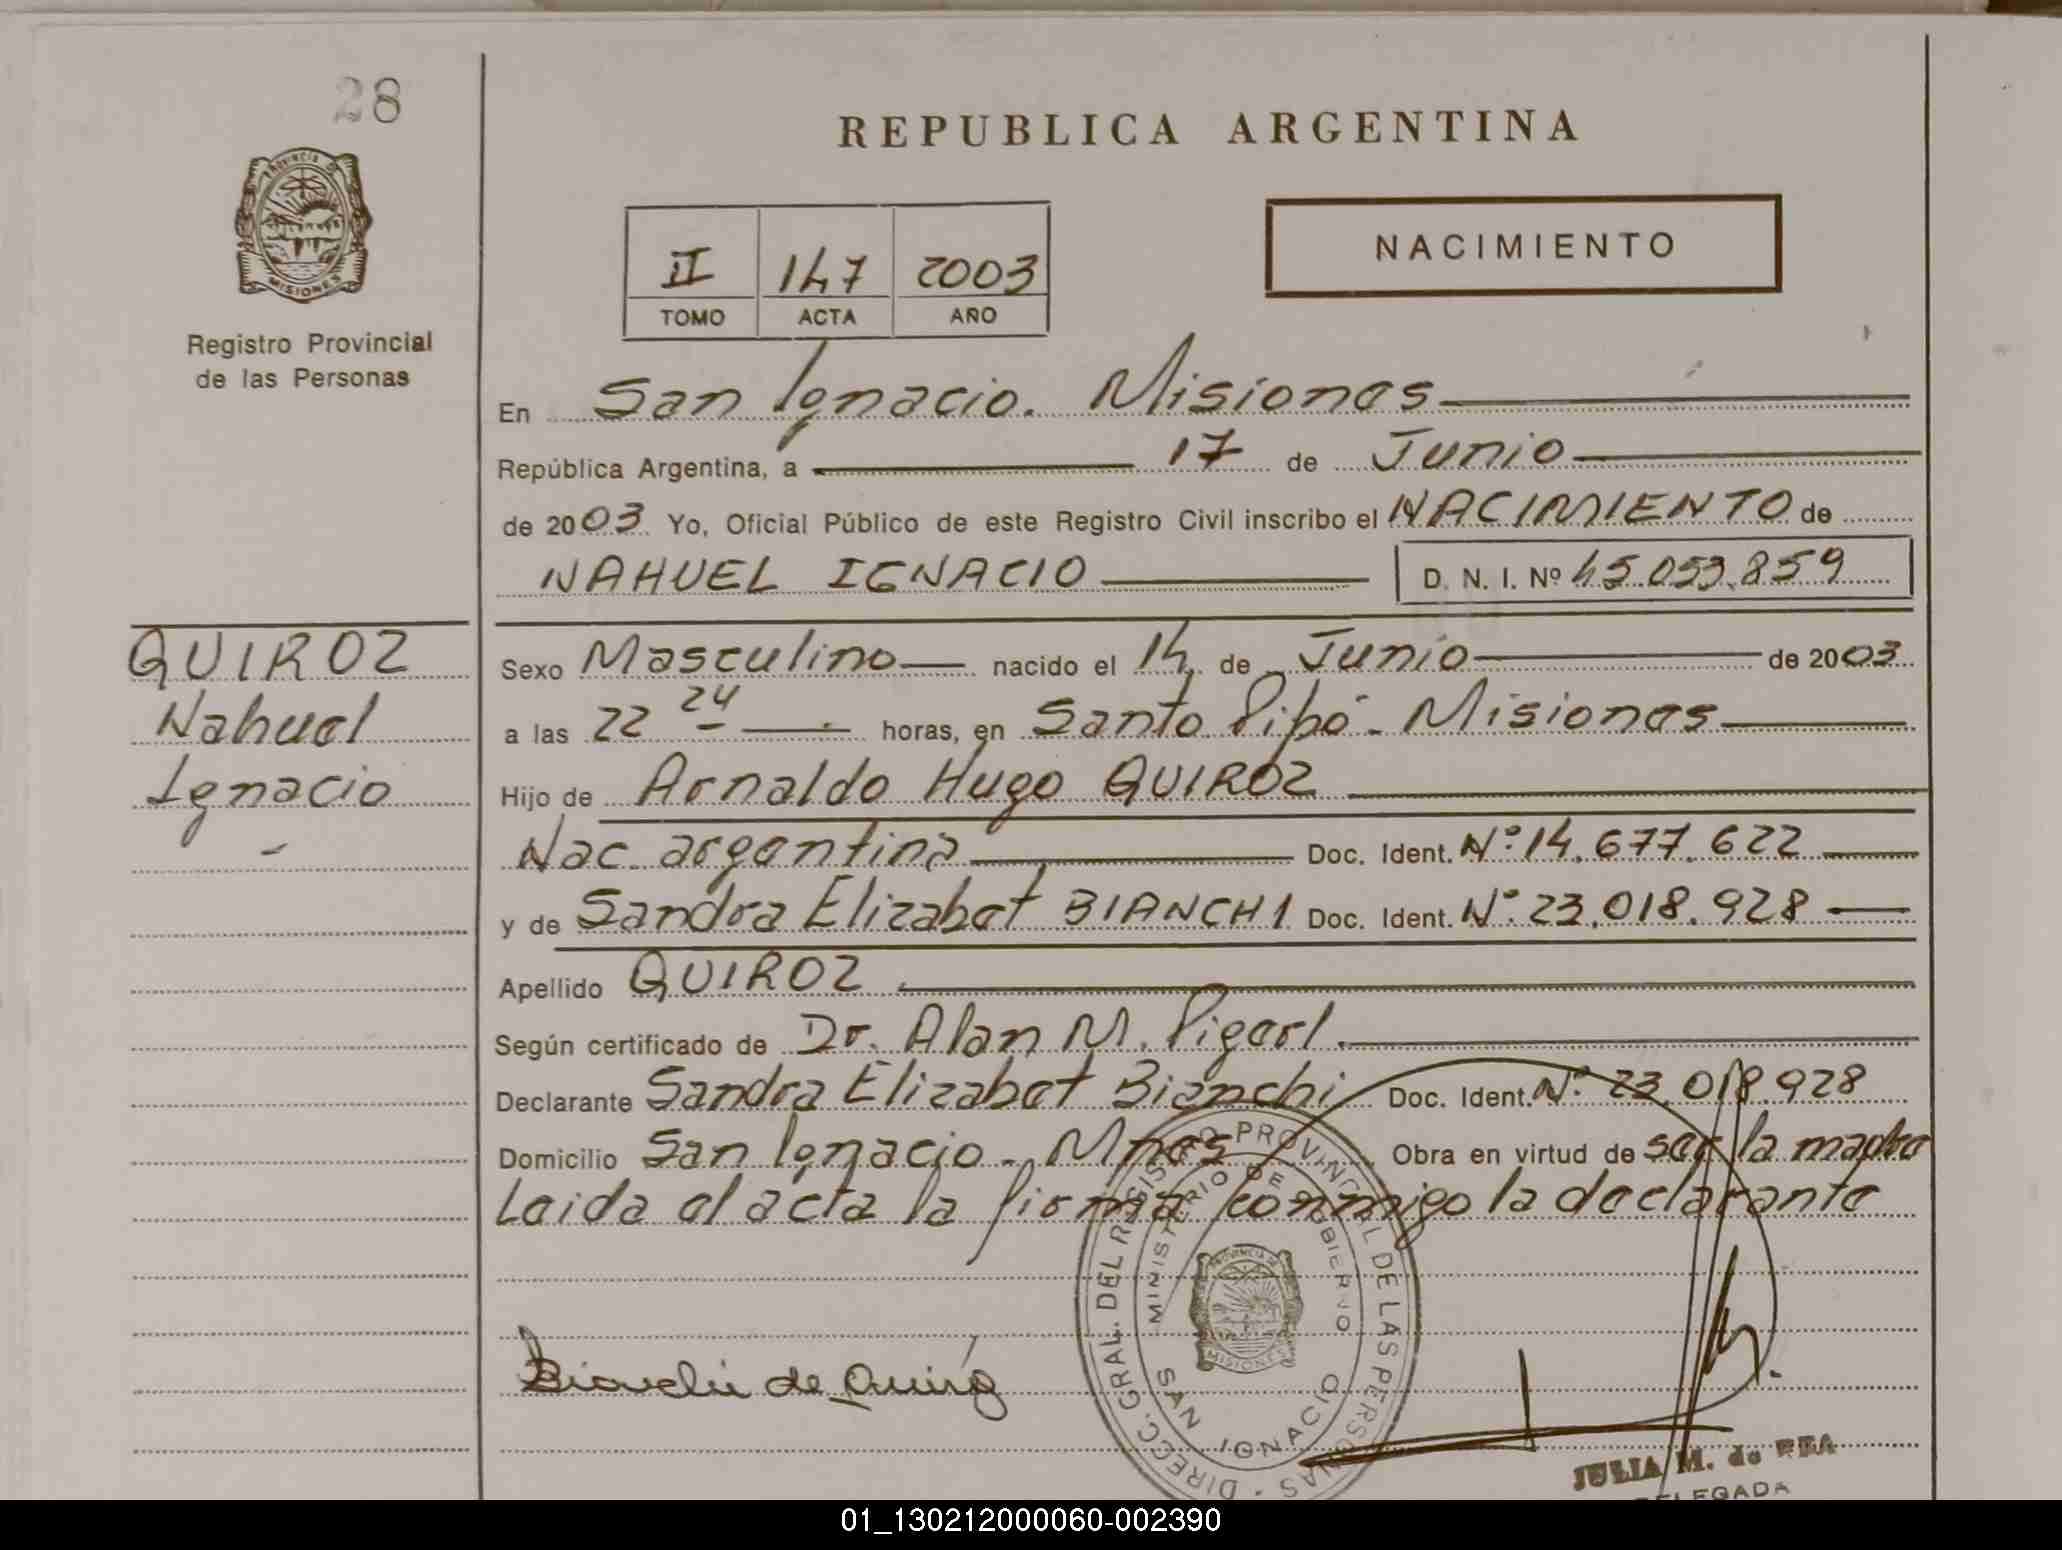 28
REPUBLICA ARGENTINA
PROVINCIA DE
MISIONES
Registro Provincial
de las Personas
II 147 2003
TOMO ACTA AÑO
NACIMIENTO
En San Ignacio. Misiones
República Argentina, a 17 de Junio
de 2003 Yo, Oficial Público de este Registro Civil inscribo el NACIMIENTO de
NAHUEL IGNACIO D. N. I. Nº 45.053.859
QUIROZ
Nahuel
Ignacio
Sexo Masculino nacido el 14 de Junio de 2003
a las 22 24 horas, en Santo Pipó - Misiones
Hijo de Arnaldo Hugo QUIROZ
Nac. argentina Doc. Ident. Nº 14.677.622
y de Sandra Elizabet BIANCHI Doc. Ident. Nº 23.018.928
Apellido QUIROZ
Según certificado de Dr. Alan M.
Declarante Sandra Elizabet Bianchi Doc. Ident. Nº 23.018.928
Domicilio San Ignacio - Mnes Obra en virtud de ser la madre
Leida el acta la firma conmigo la declarante
Bianchi de Quiróz
DIRECC. GRAL. DEL REGISTRO PROVINCIAL DE LAS PERSONAS
MINISTERIO DE GOBIERNO
SAN IGNACIO
PROVINCIA DE
MISIONES
JULIA M. de
DELEGADA
01_130212000060-002390